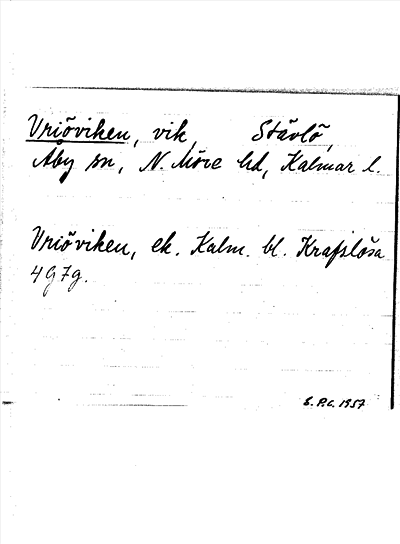 Vriöviken, vik, Stävlö,
Åby sn, N. Möre hd, Kalmar l.
Vriöviken, ek. Kalm. bl. Krafslösa
4G7g.
S. P.C. 1957